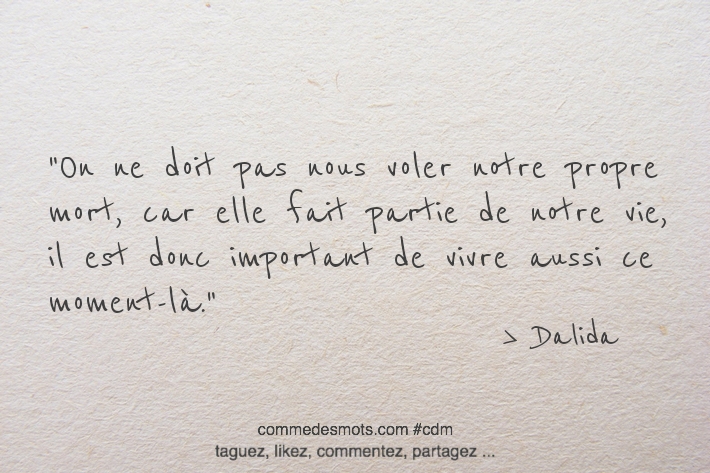 "On ne doit pas nous voler notre propre
mort, car elle fait partie de notre vie,
il est donc important de vivre aussi ce
moment-là."
> Dalida
commedesmots.com #cdm
taguez, likez, commentez, partagez ...